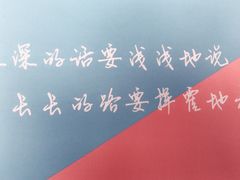 深的话要浅浅地说
长长的路要挥霍地